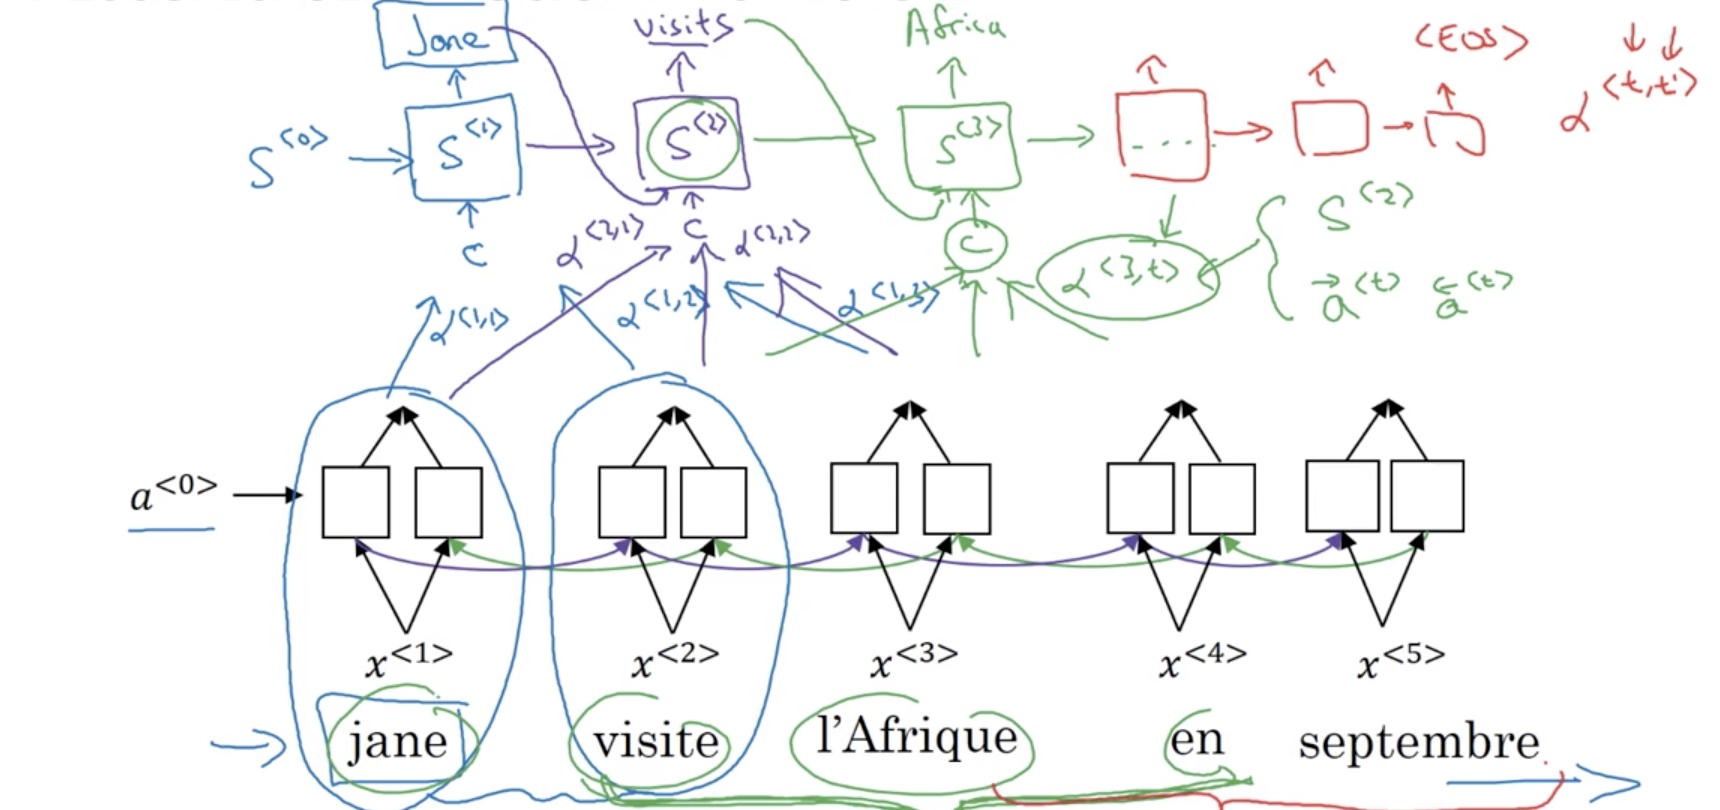 Jane visits Africa <EOS> ↓ ↓
S<0> → S<1> S<2> S<3> .... α<t,t'>
c α<2,1> c α<2,2> c α<3,t> { S<2>
α<1,1> α<1,2> α<1,3> →a<t> ←a<t>
a<0>
x<1> x<2> x<3> x<4> x<5>
jane visite l'Afrique en septembre